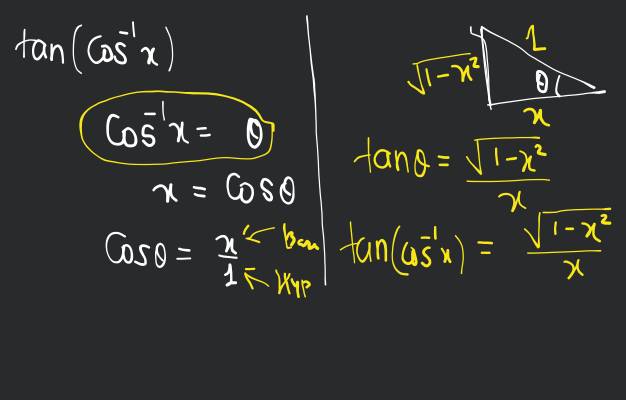 tan(Cos⁻¹x)
Cos⁻¹x = θ
x = Cosθ
Cosθ = x/1
Hyp
1
√1-x²
θ
x
tanθ = √1-x²/x
tan(cos⁻¹x) = √1-x²/x